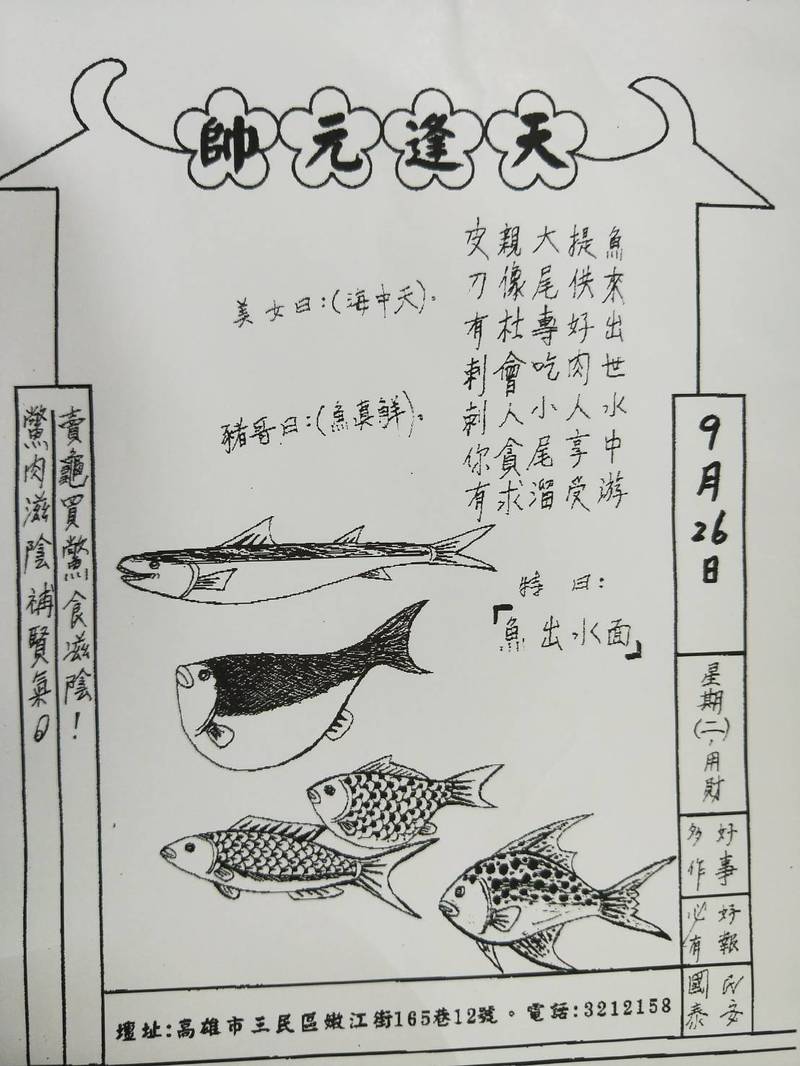 天逢元帥
魚來出世水中游
提供好肉人享受
大尾專吃小尾溜
親像社會人貪求
皮刀有刺刺你有
美女曰:(海中天)。
豬哥曰:(魚真鮮)。
特曰:
「魚出水面」
9月26日
星期(二),用財
好事
多作
好報
必有
民安
國泰
賣龜買鱉食滋陰!
鱉肉滋陰補賢氣。
壇址:高雄市三民區嫩江街165巷12號。電話:3212158